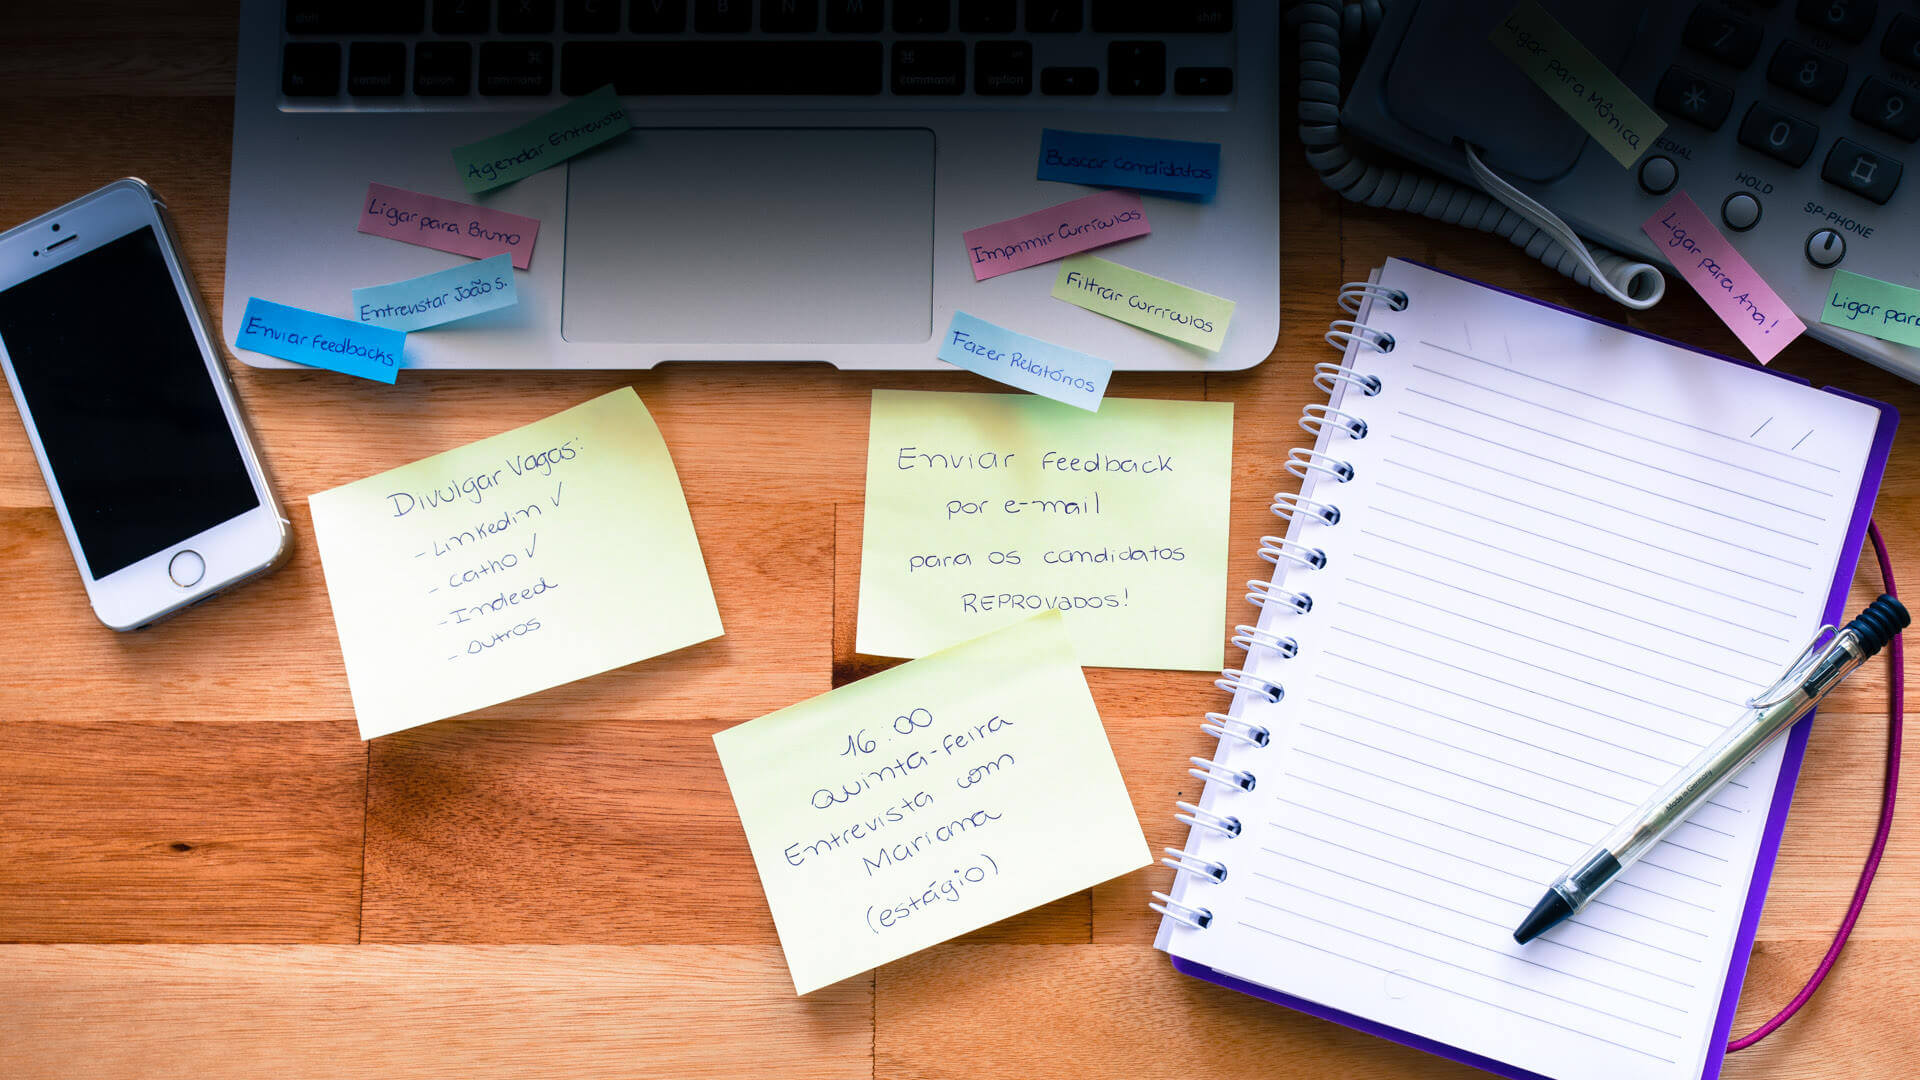 Z X C V B N M
shift
shift
fn
control
option
command
command
option
Agendar Entrevista
Ligar para Bruno
Entrevistar João S.
Enviar Feedbacks
Buscar Candidatos
Imprimir Currículos
Filtrar Currículos
Fazer Relatórios
Ligar para Mônica
Ligar para Ana!
Ligar para
5
7
8
9
*
0
HOLD
SP-PHONE
Divulgar Vagas:
- Linkedin ✓
- Catho ✓
- Indeed
- outros
Enviar Feedback
por e-mail
para os candidatos
REPROVADOS!
16:00
Quinta-feira
Entrevista com
Mariana
(estágio)
Made in Germany